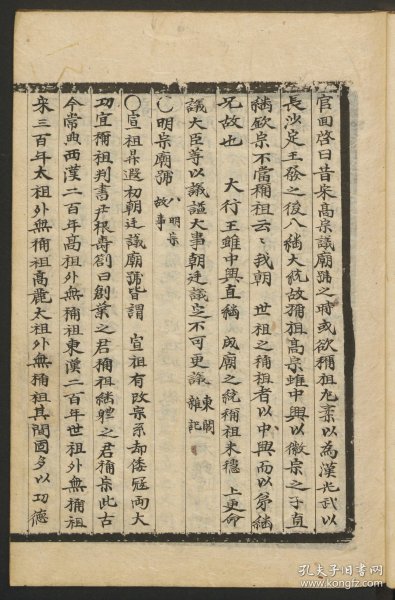 官回啓曰昔宋高宗議廟號之時或欲稱祖尤袤以為漢光武以
長沙定王發之後八繼大統故稱祖高宗雖中興以徽宗之子直
繼欽宗不當稱祖云〻我朝 世祖之稱祖者以中興而以弟繼
兄故也 大行王雖中興直繼 成廟之統稱祖未穩 上更命
議大臣等以議謚大事朝廷議定不可更議 東閣雜記
○明宗廟號故事 八明宗
○宣祖昇遐初朝廷議廟號皆謂 宣祖有改宗系却倭寇兩大
功宜稱祖判書尹根壽劄曰創業之君稱祖継軆之君稱宗此古
今常典西漢二百年高祖外無稱祖東漢二百年世祖外無稱祖
宋三百年太祖外無稱祖高麗太祖外無稱祖其間固多以功德
孔夫子旧书网
www.kongfz.com